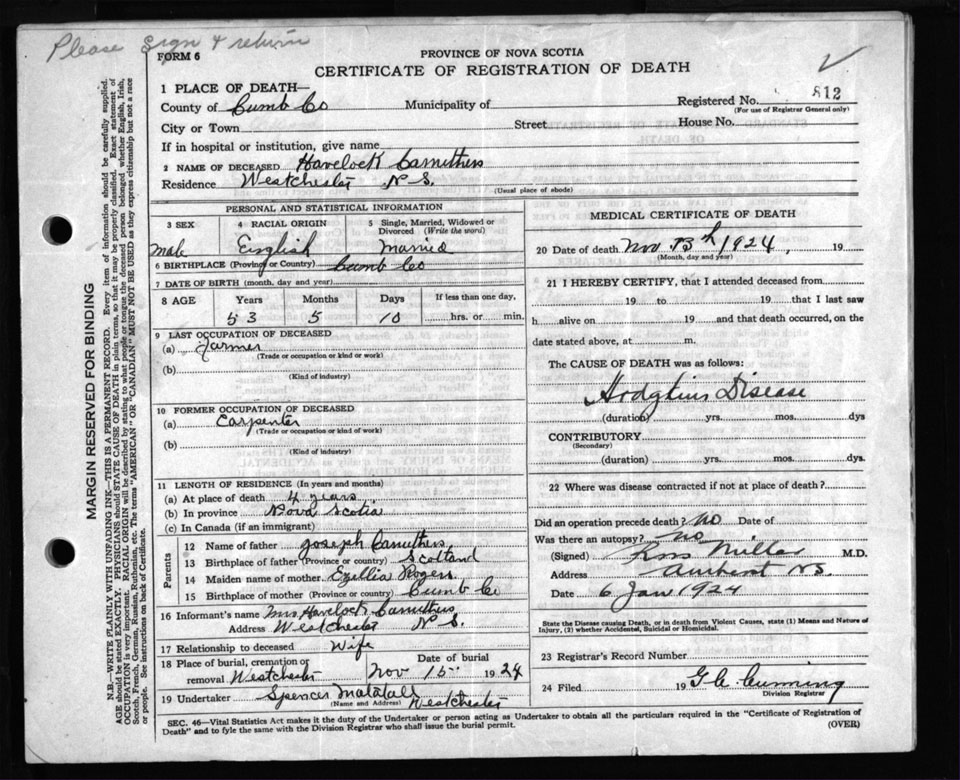 Please sign & return
FORM 6
PROVINCE OF NOVA SCOTIA
CERTIFICATE OF REGISTRATION OF DEATH
1 PLACE OF DEATH—
County of Cumb Co Municipality of Registered No. 812
(For use of Registrar General only)
City or Town Street House No.
If in hospital or institution, give name
2 NAME OF DECEASED Havelock Carruthers
Residence Westchester N S.
(Usual place of abode)
PERSONAL AND STATISTICAL INFORMATION
3 SEX 4 RACIAL ORIGIN 5 Single, Married, Widowed or Divorced (Write the word)
male English Married
6 BIRTHPLACE (Province or Country) Cumb Co
7 DATE OF BIRTH (month, day and year)
8 AGE Years Months Days If less than one day,
53 5 10 hrs. or min.
9 LAST OCCUPATION OF DECEASED
(a) Farmer
(Trade or occupation or kind or work)
(b)
(Kind of industry)
10 FORMER OCCUPATION OF DECEASED
(a) Carpenter
(Trade or occupation or kind of work)
(b)
(Kind of industry)
11 LENGTH OF RESIDENCE (In years and months)
(a) At place of death 4 years
(b) In province Nova Scotia
(c) In Canada (if an immigrant)
Parents
12 Name of father Joseph Carruthers
13 Birthplace of father (Province or country) Scotland
14 Maiden name of mother Rogers
15 Birthplace of mother (Province or country) Cumb Co
16 Informant's name Mrs Havelock Carruthers
Address Westchester N S.
17 Relationship to deceased Wife
18 Place of burial, cremation or removal Westchester Date of burial Nov 15 1924
19 Undertaker Spencer Matatall Westchester
(Name and Address)
MEDICAL CERTIFICATE OF DEATH
20 Date of death Nov 13th 1924, 19
(Month, day and year)
21 I HEREBY CERTIFY, that I attended deceased from
19 to 19 that I last saw
h alive on 19 and that death occurred, on the
date stated above, at m.
The CAUSE OF DEATH was as follows:
Hodgkins Disease
(duration) yrs. mos. dys
CONTRIBUTORY
(Secondary)
(duration) yrs. mos. dys.
22 Where was disease contracted if not at place of death?
Did an operation precede death? no Date of
Was there an autopsy? no
(Signed) Miller M.D.
Address Amherst N.S.
Date 6 Jan 1924
State the Disease causing Death, or in death from Violent Causes, state (1) Means and Nature of
Injury, (2) whether Accidental, Suicidal or Homicidal.
23 Registrar's Record Number
24 Filed 19 G. C. Cumming
Division Registrar
SEC. 46—Vital Statistics Act makes it the duty of the Undertaker or person acting as Undertaker to obtain all the particulars required in the "Certificate of Registration of
Death" and to fyle the same with the Division Registrar who shall issue the burial permit. (OVER)
MARGIN RESERVED FOR BINDING
N.B.—WRITE PLAINLY WITH UNFADING INK—THIS IS A PERMANENT RECORD. Every item of information should be carefully supplied.
AGE should be stated EXACTLY. PHYSICIANS should STATE CAUSE OF DEATH in plain terms, so that it may be properly classified. Exact statement of
OCCUPATION is very important. RACIAL ORIGIN will be described by stating to what people or tongue the deceased person belonged whether English, Irish,
Scotch, French, German, Russian, Ruthenian, etc. The terms "AMERICAN" OR "CANADIAN" MUST NOT BE USED as they express citizenship but not a race
or people. See instructions on back of Certificate.